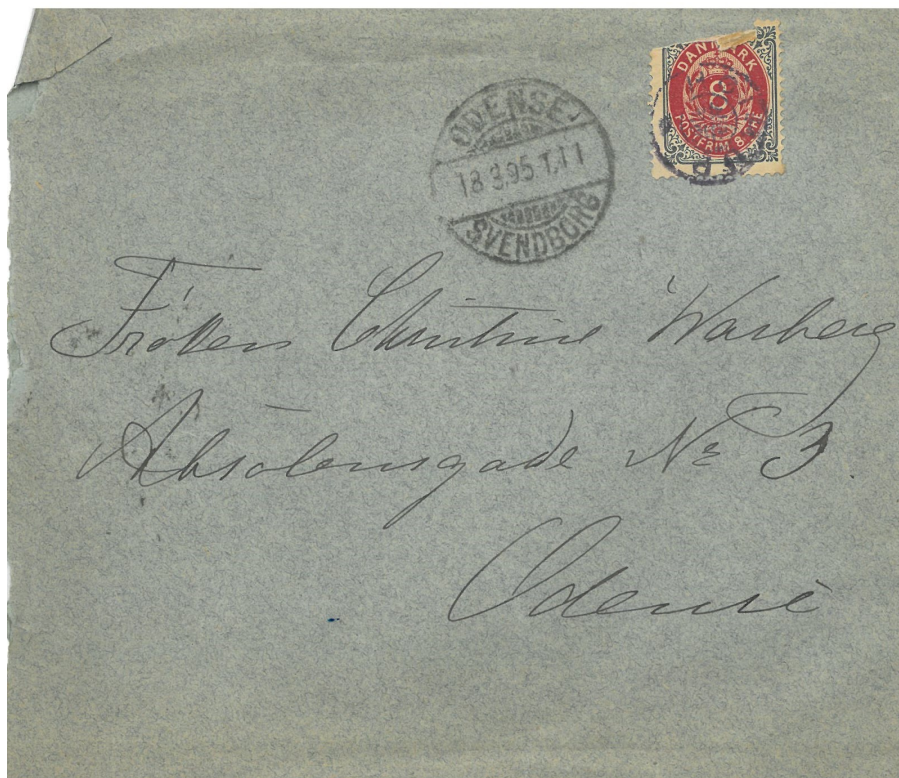 DANMARK
8
POSTFRIM 8 ØRE
ODENSE
18.3.95 1,T1
SVENDBORG
Frøken Christine Warberg
Absolonsgade No 3.
Odense